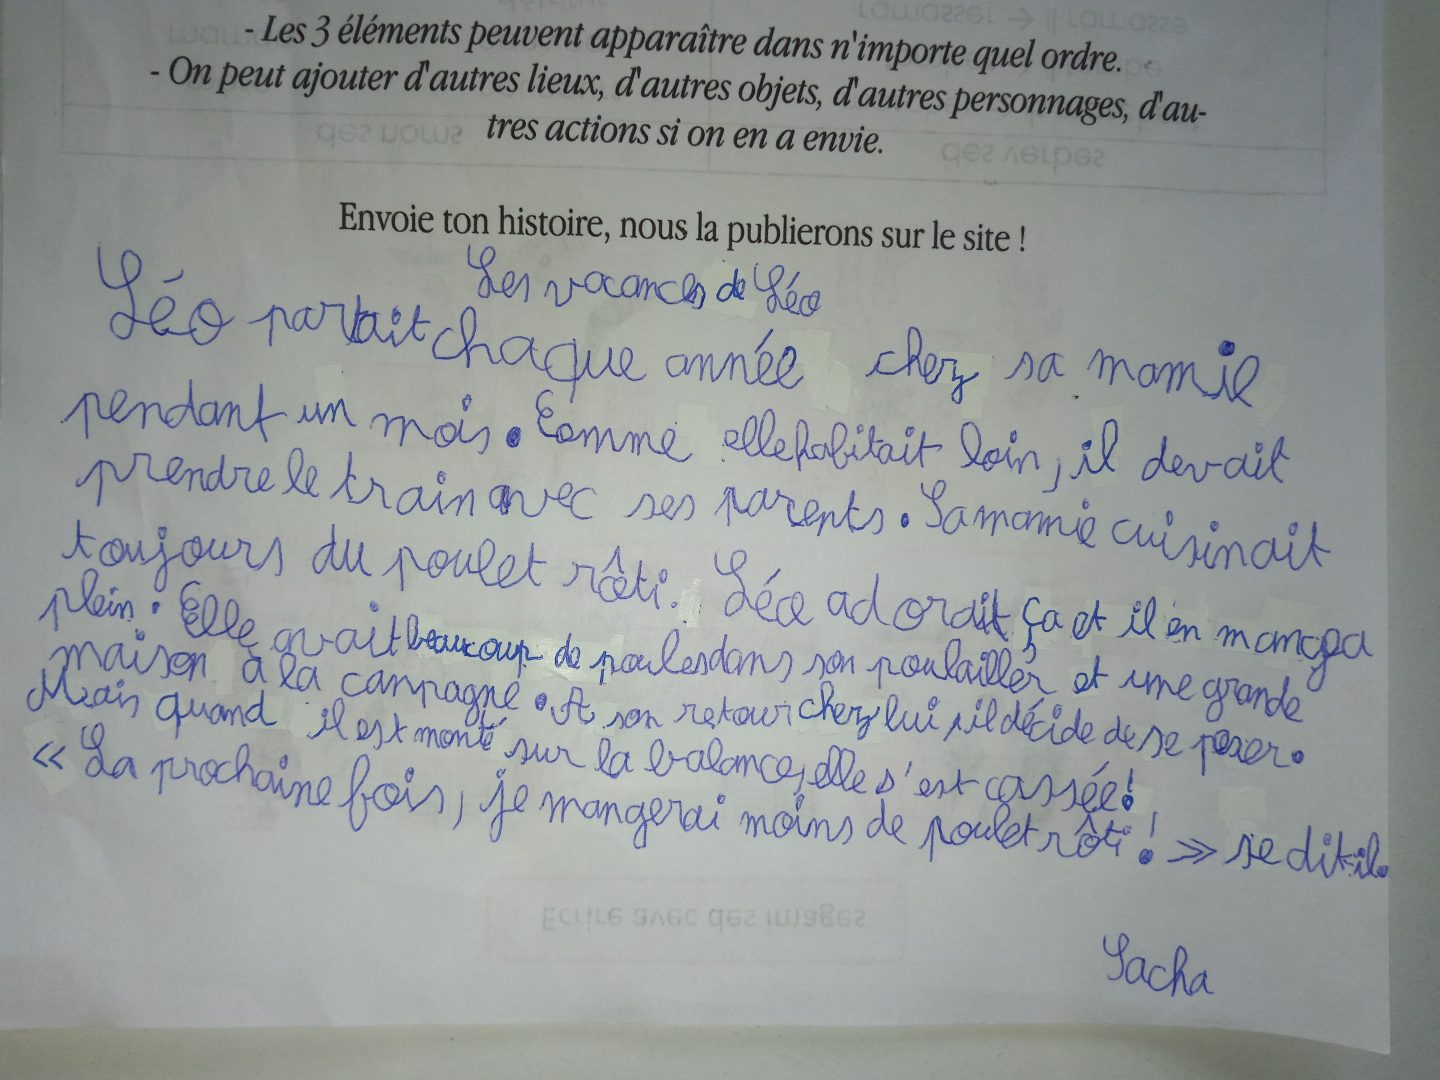 - Les 3 éléments peuvent apparaître dans n'importe quel ordre.
- On peut ajouter d'autres lieux, d'autres objets, d'autres personnages, d'au-
tres actions si on en a envie.
Envoie ton histoire, nous la publierons sur le site !
Les vacances de Léo
Léo partait chaque année chez sa mamie
pendant un mois. Comme elle habitait loin, il devait
prendre le train avec ses parents. Sa mamie cuisinait
toujours du poulet rôti. Léo adorait ça et il en mangea
plein. Elle avait beaucoup de poules dans son poulailler et une grande
maison à la campagne. A son retour chez lui, il décide de se peser.
Mais quand il est monté sur la balance, elle s'est cassée !
« La prochaine fois, je mangerai moins de poulet rôti ! » se dit-il.
Sacha
des noms
des verbes
ramasser → il ramasse
Ecrire avec des images